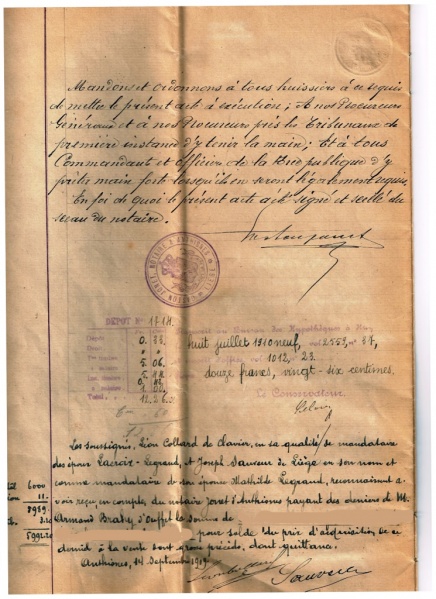 Mandons et ordonnons à tous huissiers à ce requis
de mettre le présent acte à exécution; A nos Procureurs
Généraux et à nos Procureurs près les Tribunaux de
première instance d'y tenir la main; Et à tous
Commandants et Officiers de la Force publique d'y
prêter main forte lorsqu'ils en seront légalement requis.
En foi de quoi le présent acte a été signé et scellé du
sceau du notaire.
DEPOT N°
huit juillet 1910 neuf, vol 2559, n° 87,
1012, 23.
douze francs, vingt-six centimes.
Le Conservateur.
Total
Les soussignés, Léon Collard de Clavier, en sa qualité de mandataire
des époux Lacroix-Legrand, et Joseph Sauveur de Liège en son nom et
comme mandataire de son épouse Mathilde Legrand, reconnaissent
avoir reçu, en compte, du notaire Joret d'Anthisnes payant des deniers de M.
Armand Braty d'Ouffet la somme de
6000
11.
5989.
pour solde du prix d'acquisition de ce
dernier à la vente dont grosse précède, dont quittance.
Anthisnes, 14 Septembre
Sauveur